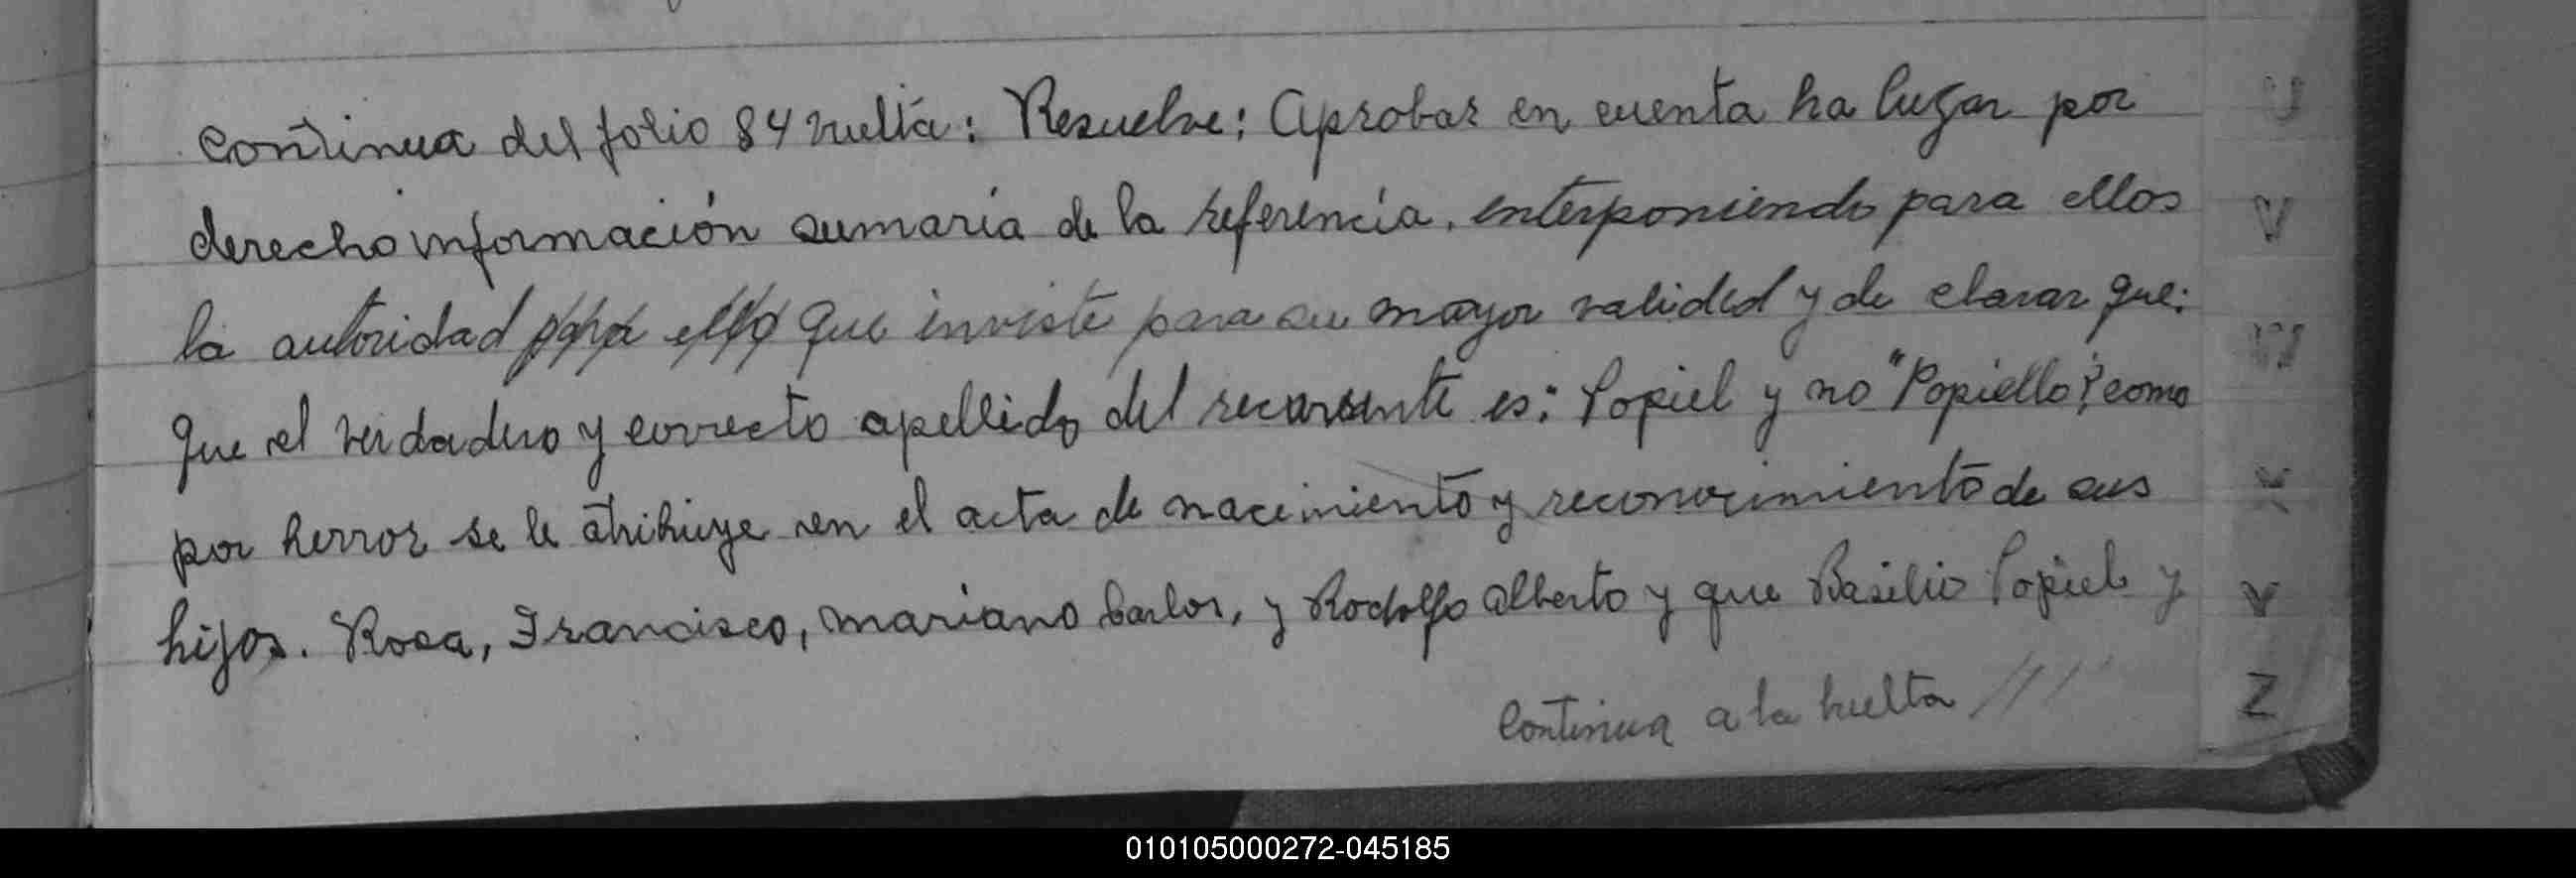 Continua del folio 84 vuelta: Resuelve: Aprobar en cuenta ha lugar por
derecho información sumaria de la referencia, interponiendo para ellos
la autoridad para ello que inviste para su mayor valided y de clarar que:
Que el verdadero y correcto apellido del recursente es: Popiel y no "Popiello", como
por herror se le atribuye en el acta de nacimiento y reconocimiento de sus
hijos. Rosa, Francisco, Mariano Carlos, y Rodolfo Alberto y que Basilio Popiel y
Continua a la huelta ///
U
V
W
X
Y
Z
010105000272-045185